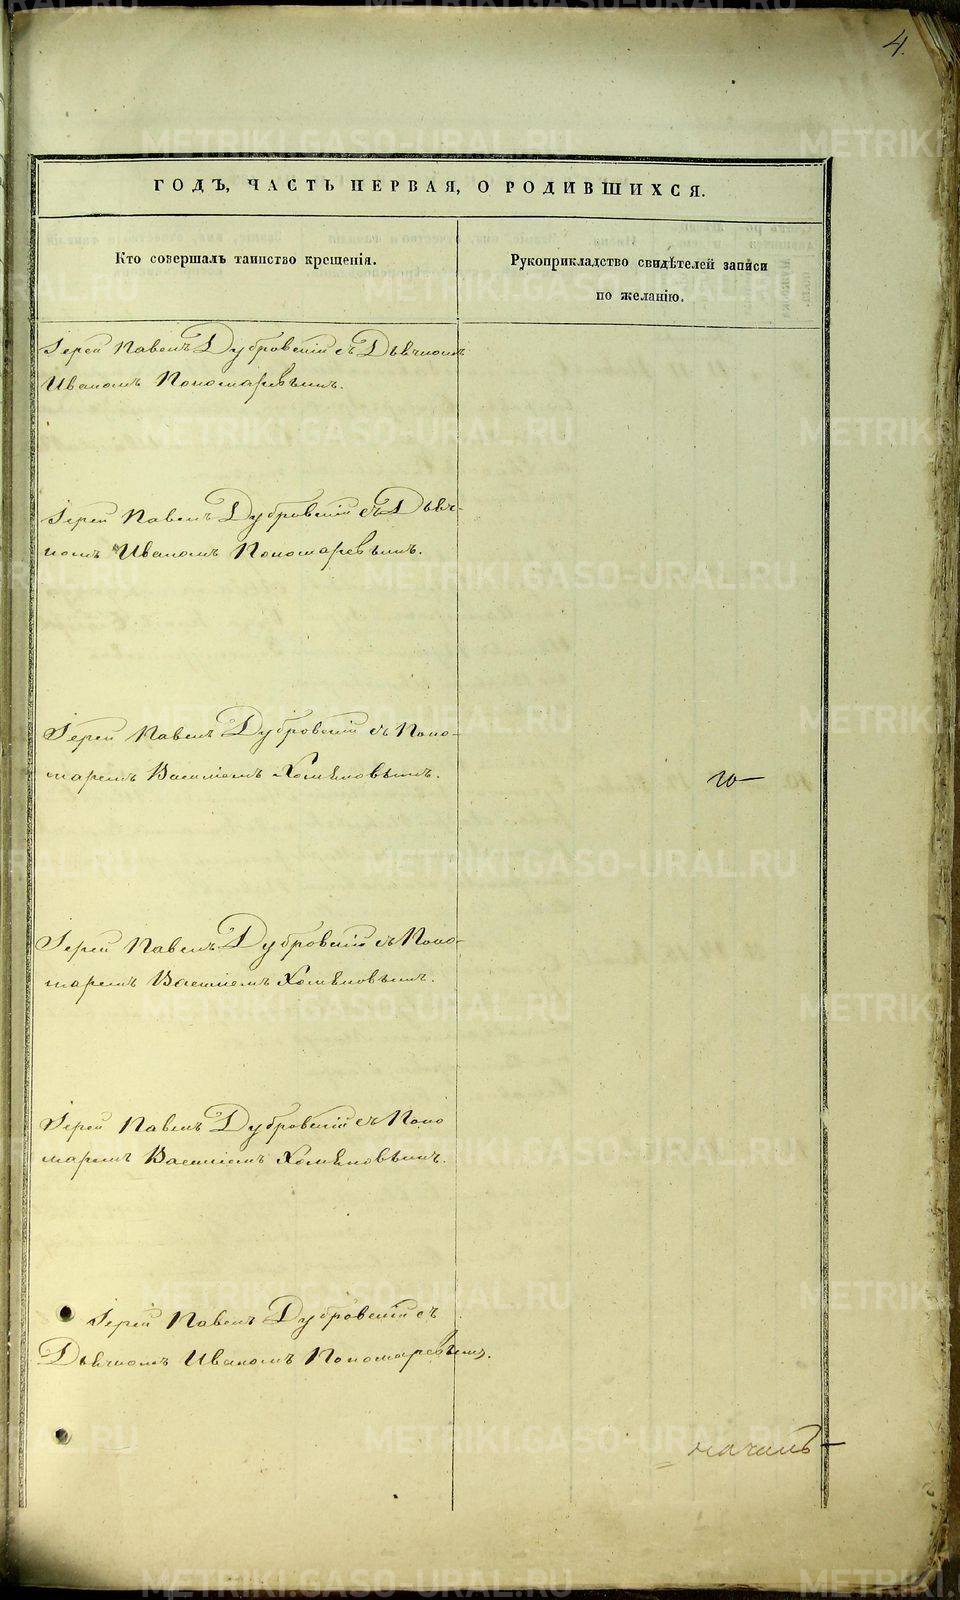 4.
ГОДЪ, ЧАСТЬ ПЕРВАЯ, О РОДИВШИХСЯ.
Кто совершалъ таинство крещенія.
Рукоприкладство свидѣтелей записи
по желанію.
Іерей Павелъ Дубровскій съ Дьячкомъ
Иваномъ Пономаревымъ.
Іерей Павелъ Дубровскій съ Дьяч-
комъ Иваномъ Пономаревымъ.
Іерей Павелъ Дубровскій съ Поно-
маремъ Василіемъ Хомяковымъ.
Іерей Павелъ Дубровскій съ Поно-
маремъ Василіемъ Хомяковымъ.
Іерей Павелъ Дубровскій съ Поно
маремъ Василіемъ Хомяковымъ.
Іерей Павелъ Дубровскій съ
Дьячкомъ Иваномъ Пономаревымъ.
METRIKI.GASO-URAL.RU